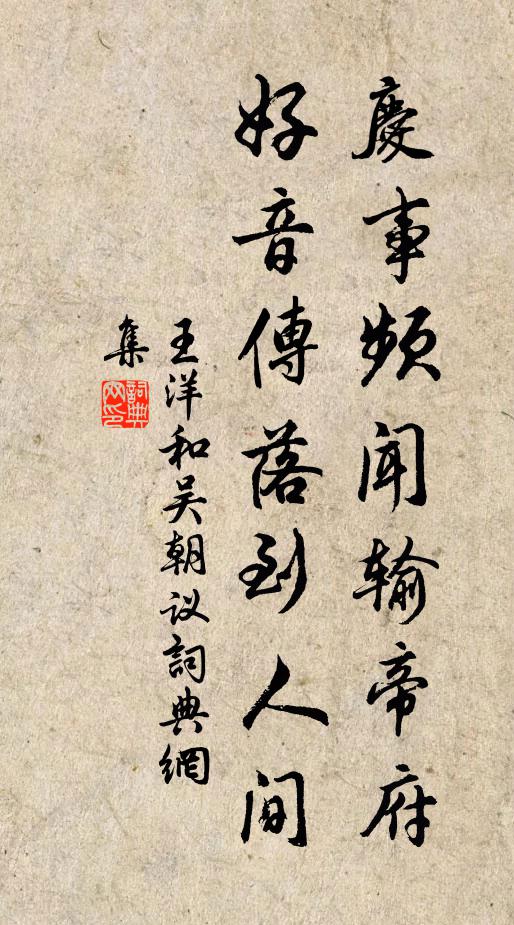 慶事頻闻输帝府
好音傳落到人间
王洋和吴朝议詞典網
集
詞典网印